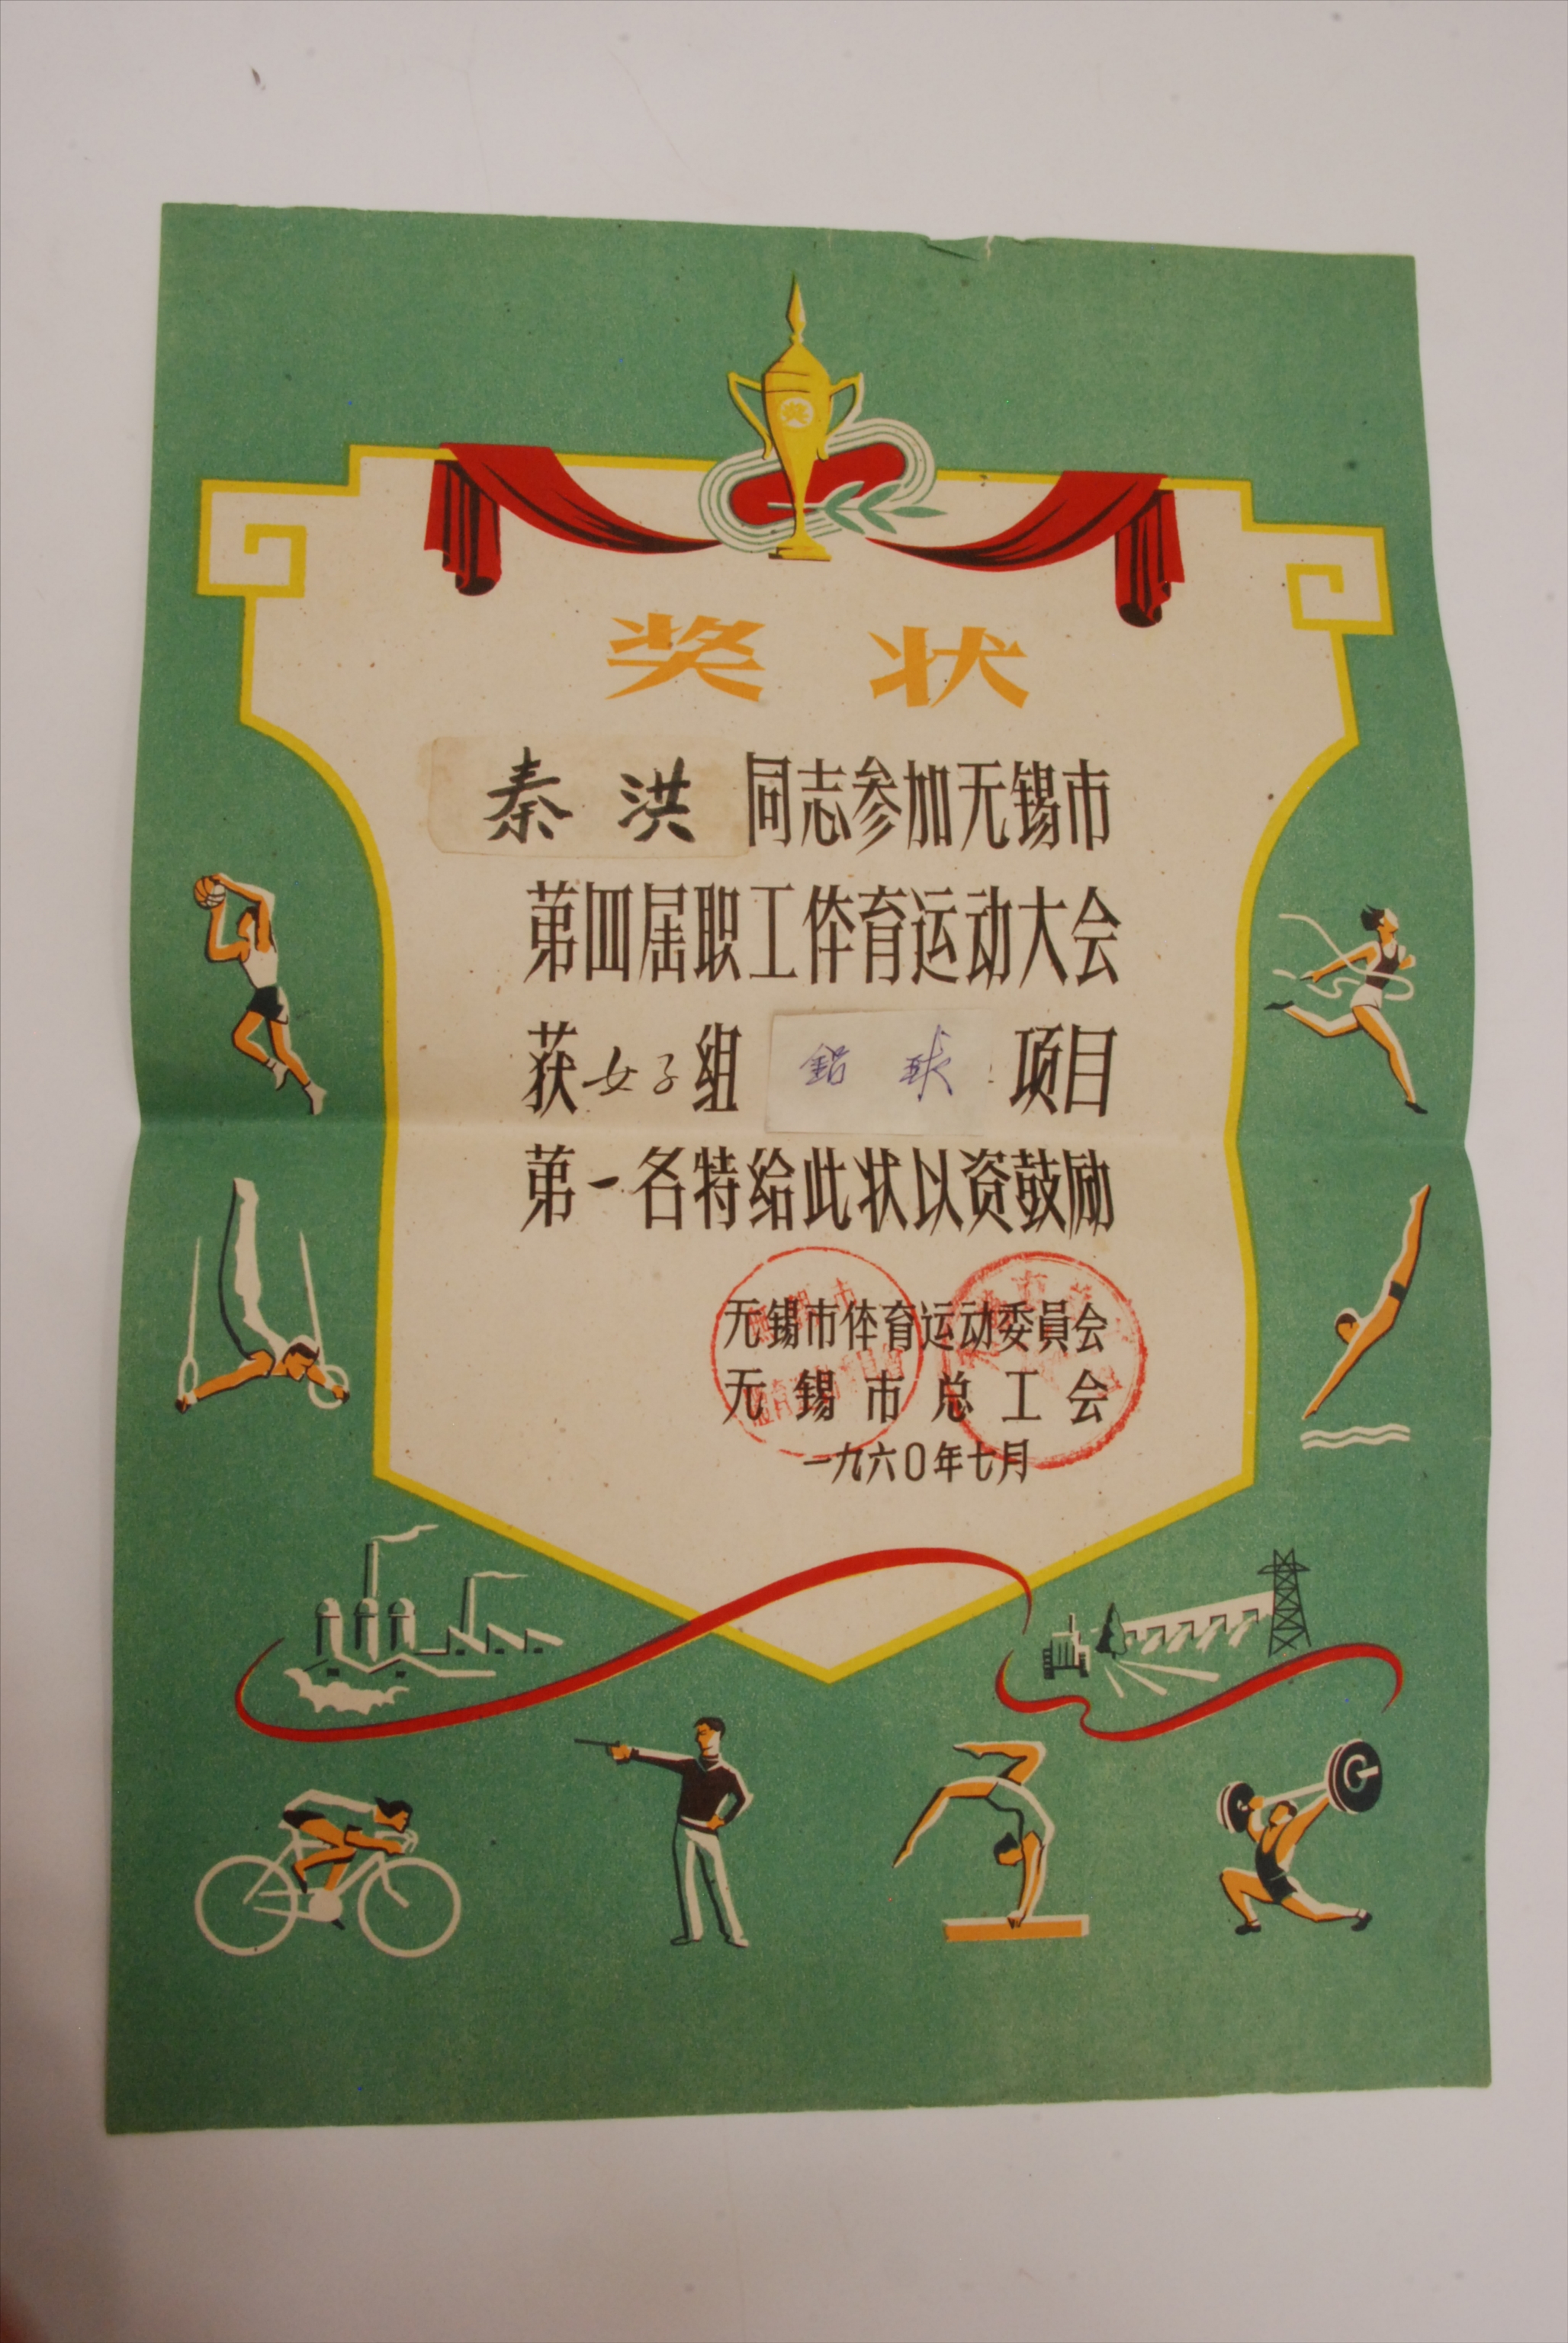 奖
奖 状
秦 洪 同志参加无锡市
第四届职工体育运动大会
获女子组 铅 球 项目
第一名特给此状以资鼓励
无锡市体育运动委員会
无锡市总工会
一九六〇年七月